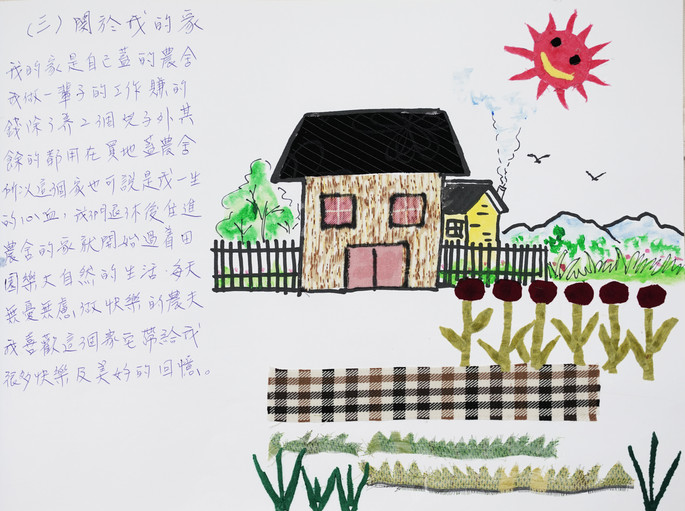 (三) 関於我的家
我的家是自己蓋的農舍
我做一輩子的工作賺的
錢除了養2個兒子外其
餘的都用在買地蓋農舍
所以這個家也可說是我一生
的心血,我們退休後住進
農舍的家就開始過著田
園樂大自然的生活.每天
無憂無慮,做快樂的農夫
我喜歡這個家它帶給我
很多快樂及美好的回憶。